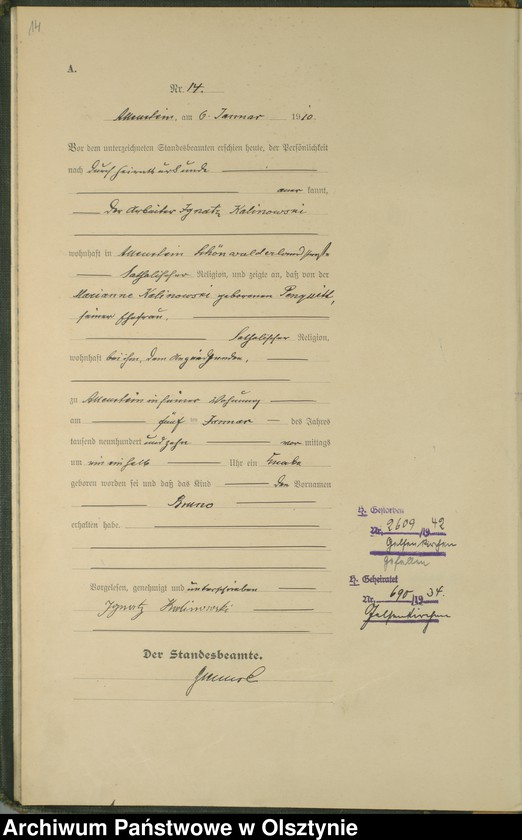 14
A.
Nr. 14.
Allenstein, am 6. Januar 1910.
Vor dem unterzeichneten Standesbeamten erschien heute, der Persönlichkeit
nach durch Heiratsurkunde
aner kannt,
Der Arbeiter Ignatz Kalinowski
wohnhaft in Allenstein Schönwalderlandstraße
katholischer Religion, und zeigte an, daß von der
Marianne Kalinowski geborenen Penquitt,
seiner Ehefrau,
katholischer Religion,
wohnhaft bei ihm, dem Anzeigenden,
zu Allenstein in seiner Wohnung
am fünf ten Januar des Jahres
tausend neunhundert und zehn vor mittags
um ein einhalb Uhr ein Knabe
geboren worden sei und daß das Kind den Vornamen
Bruno
erhalten habe.
Vorgelesen, genehmigt und unterschrieben
Ignatz Kalinowski
Der Standesbeamte.
H. Gestorben
Nr. 2609/1942
Gelsenkirchen
Gefallen
H. Geheiratet
Nr. 690/1934.
Gelsenkirchen
Archiwum Państwowe w Olsztynie